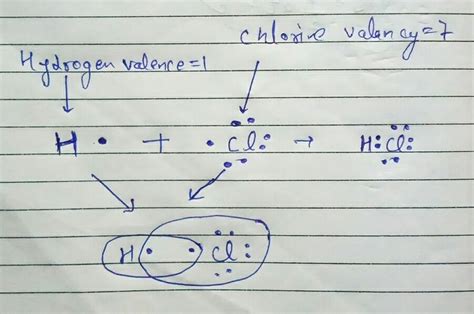 chlorine valency=7
Hydrogen valence=1
H • + •Cl: → H:Cl:
H • • Cl: